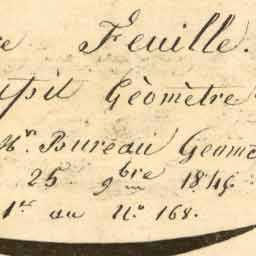 re Feuille.
upil Géomètre
Mr. Bureau Geomè
25 9bre 1845.
1er au No 168.